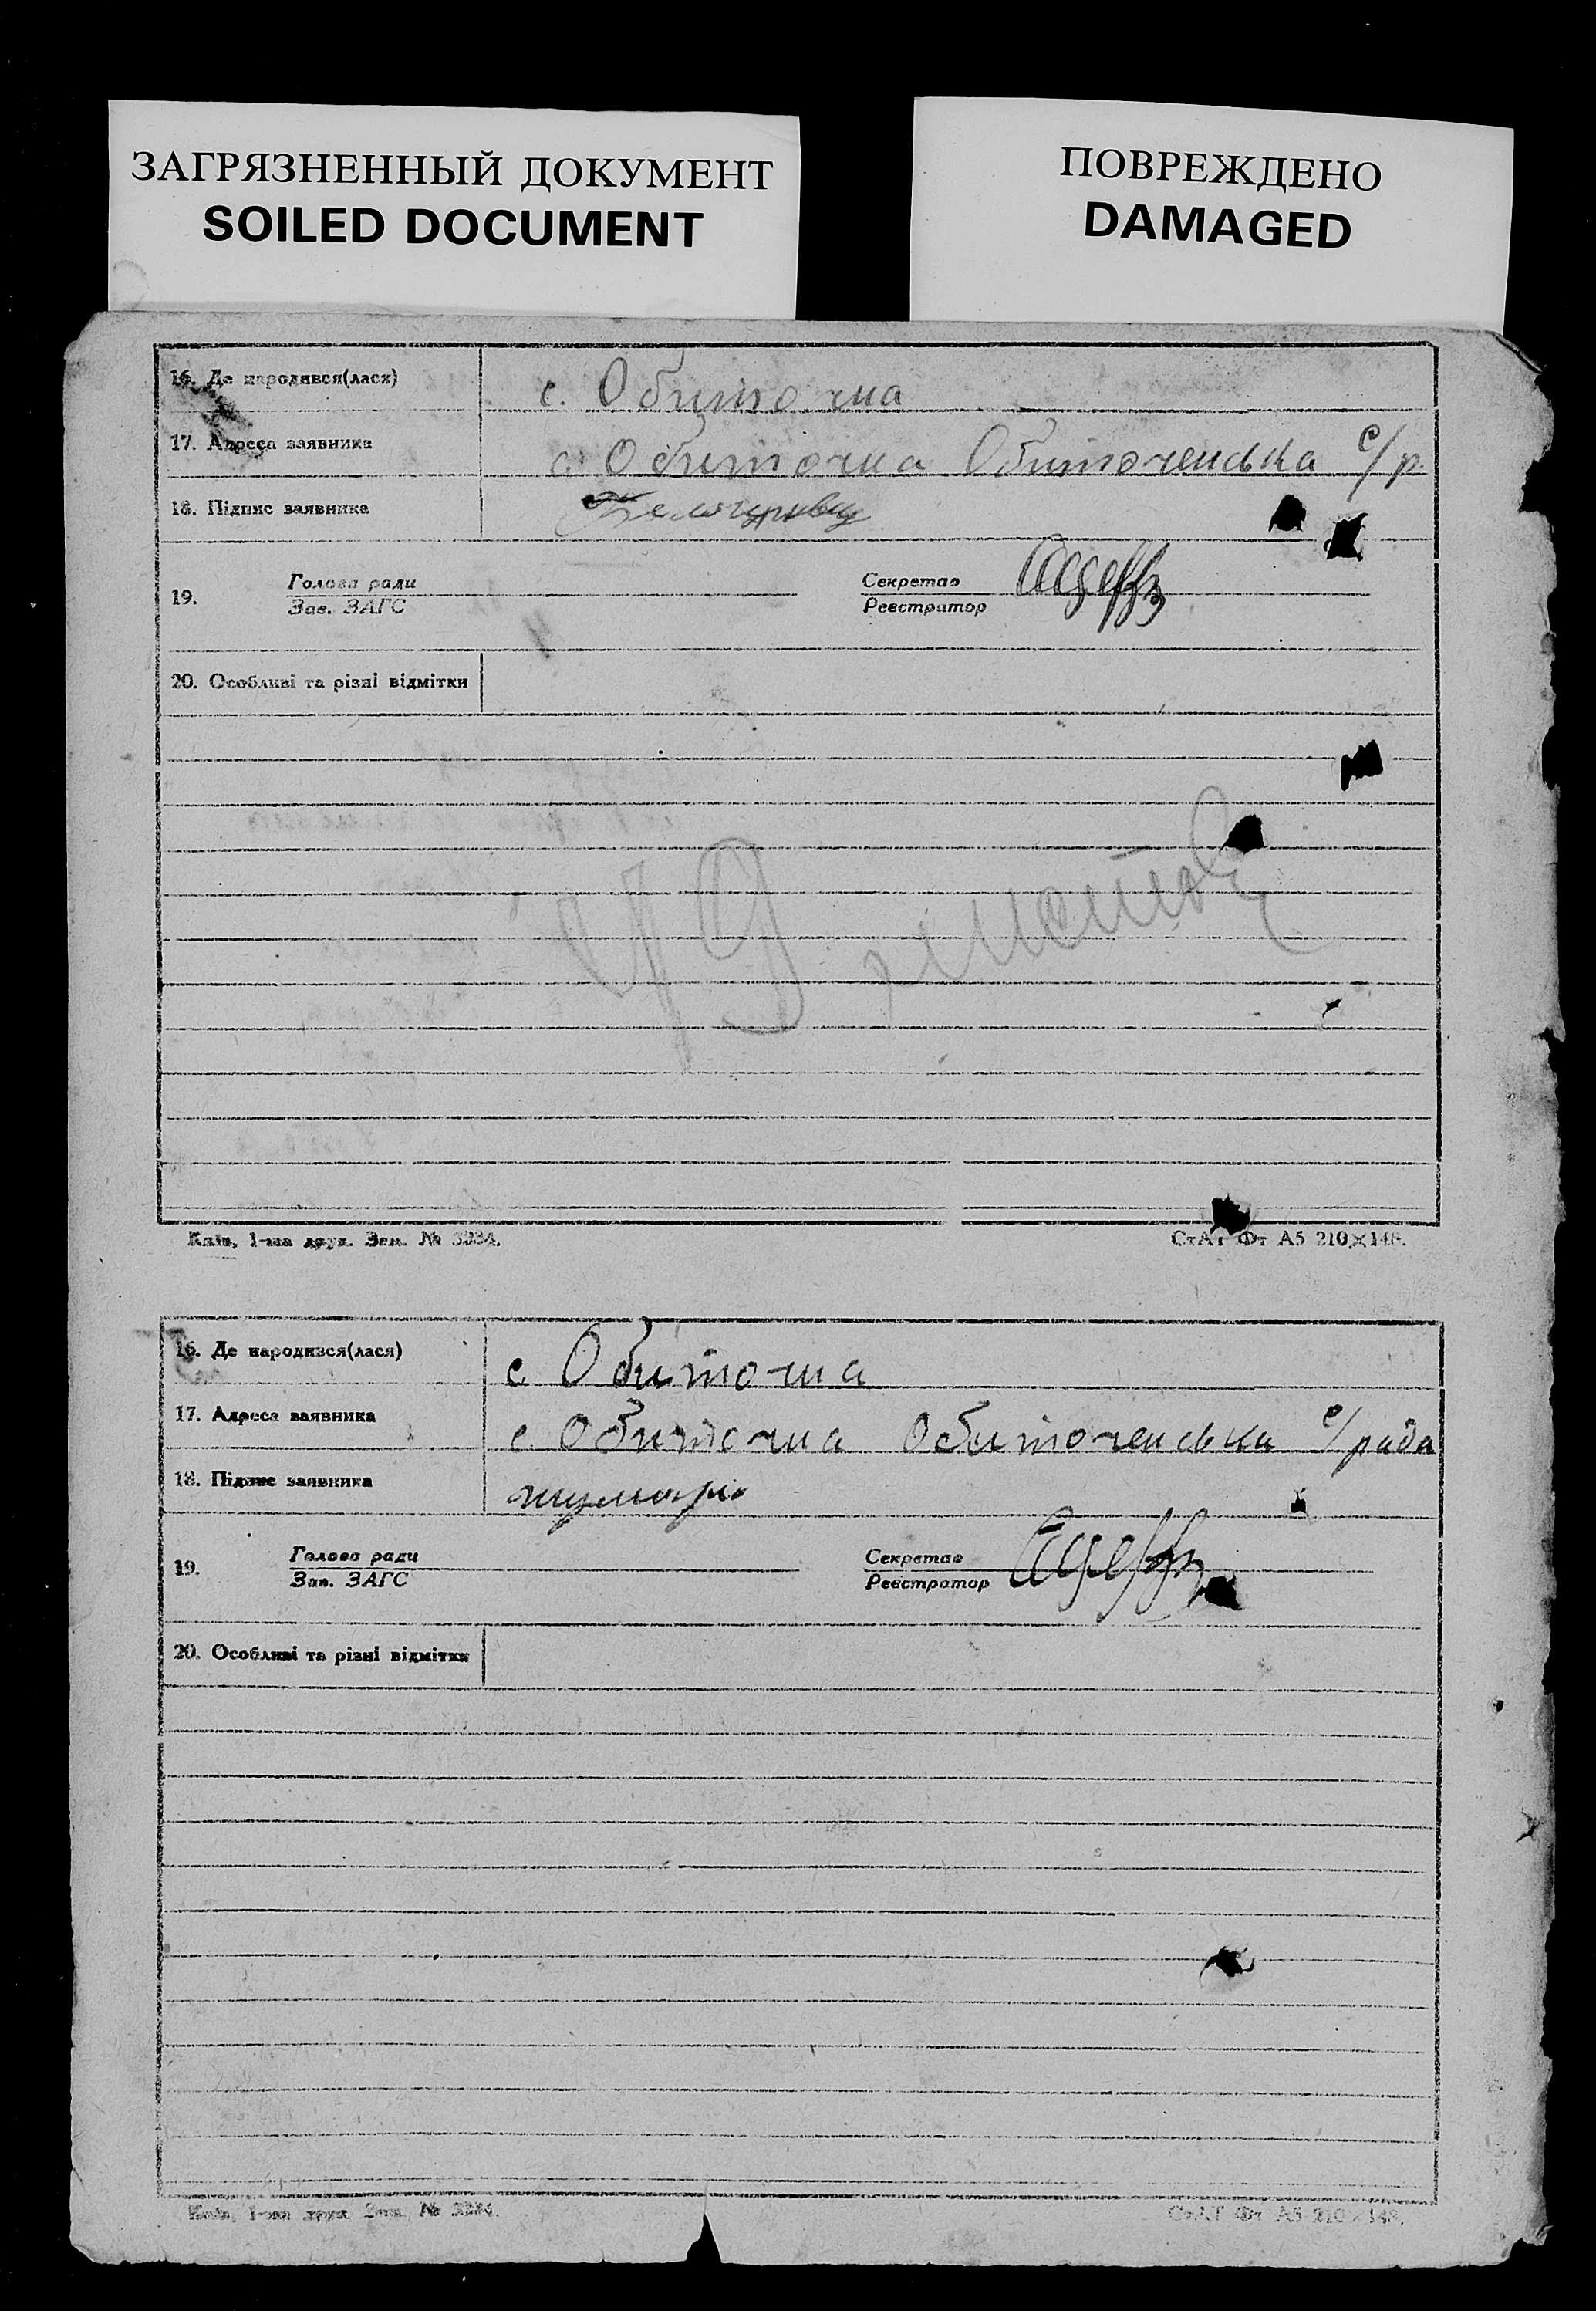 ЗАГРЯЗНЕННЫЙ ДОКУМЕНТ
SOILED DOCUMENT
ПОВРЕЖДЕНО
DAMAGED
16. Де народився(лася) с. Обиточна
17. Адреса заявника с. Обиточна Обиточенська с/р.
18. Підпис заявника
19. Голова ради
Зав. ЗАГС
Секретар
Реєстратор
20. Особливі та різні відмітки
Київ, 1-ша друк. Зам. № 3234.
СтАт Фт А5 210×148.
16. Де народився(лася) с. Обиточна
17. Адреса заявника с. Обиточна Обиточенська с/рада
18. Підпис заявника
19. Голова ради
Зав. ЗАГС
Секретар
Реєстратор
20. Особливі та різні відмітки
Київ, 1-ша друк. Зам. № 3234.
СтАт Фт А5 210×148.